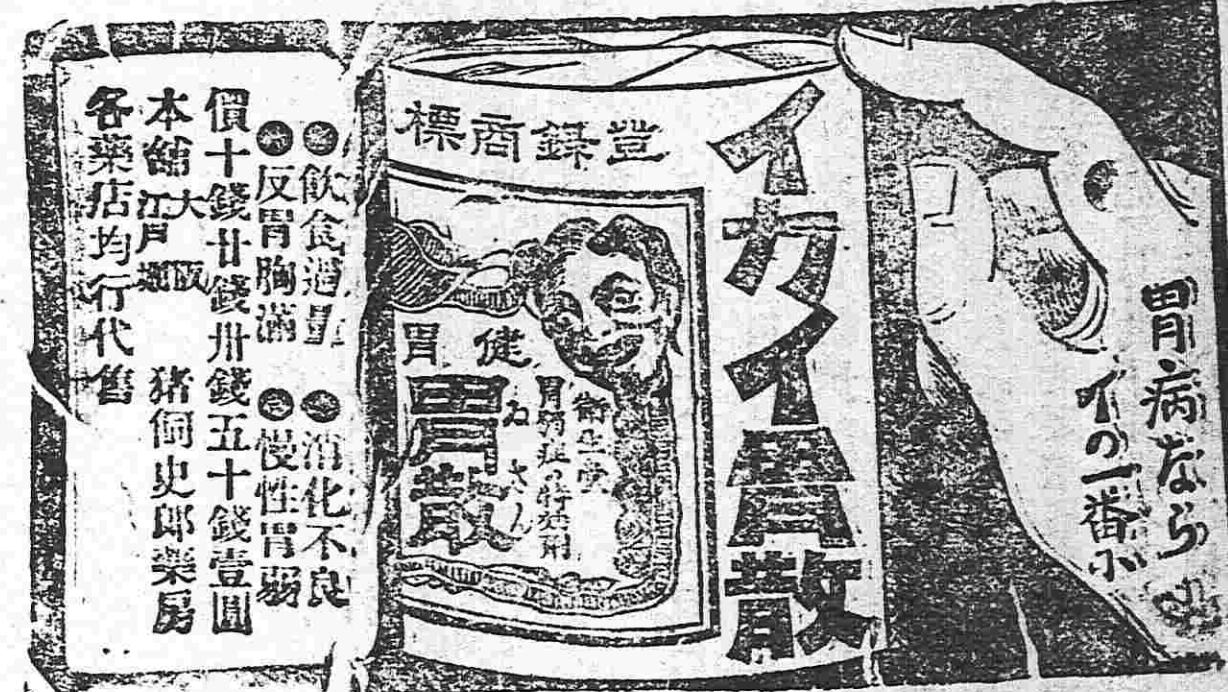 胃病なら
イの一番に
イカイ胃散
標商録登
胃健
衛生堂
胃病症の特効剤
ゐさん
胃散
●飲食過量 ●消化不良
●反胃胸滿 ●慢性胃弱
價十錢廿錢卅錢五十錢壹圓
本舖大阪江戸堀 猪飼史郎藥房
各藥店均行代售